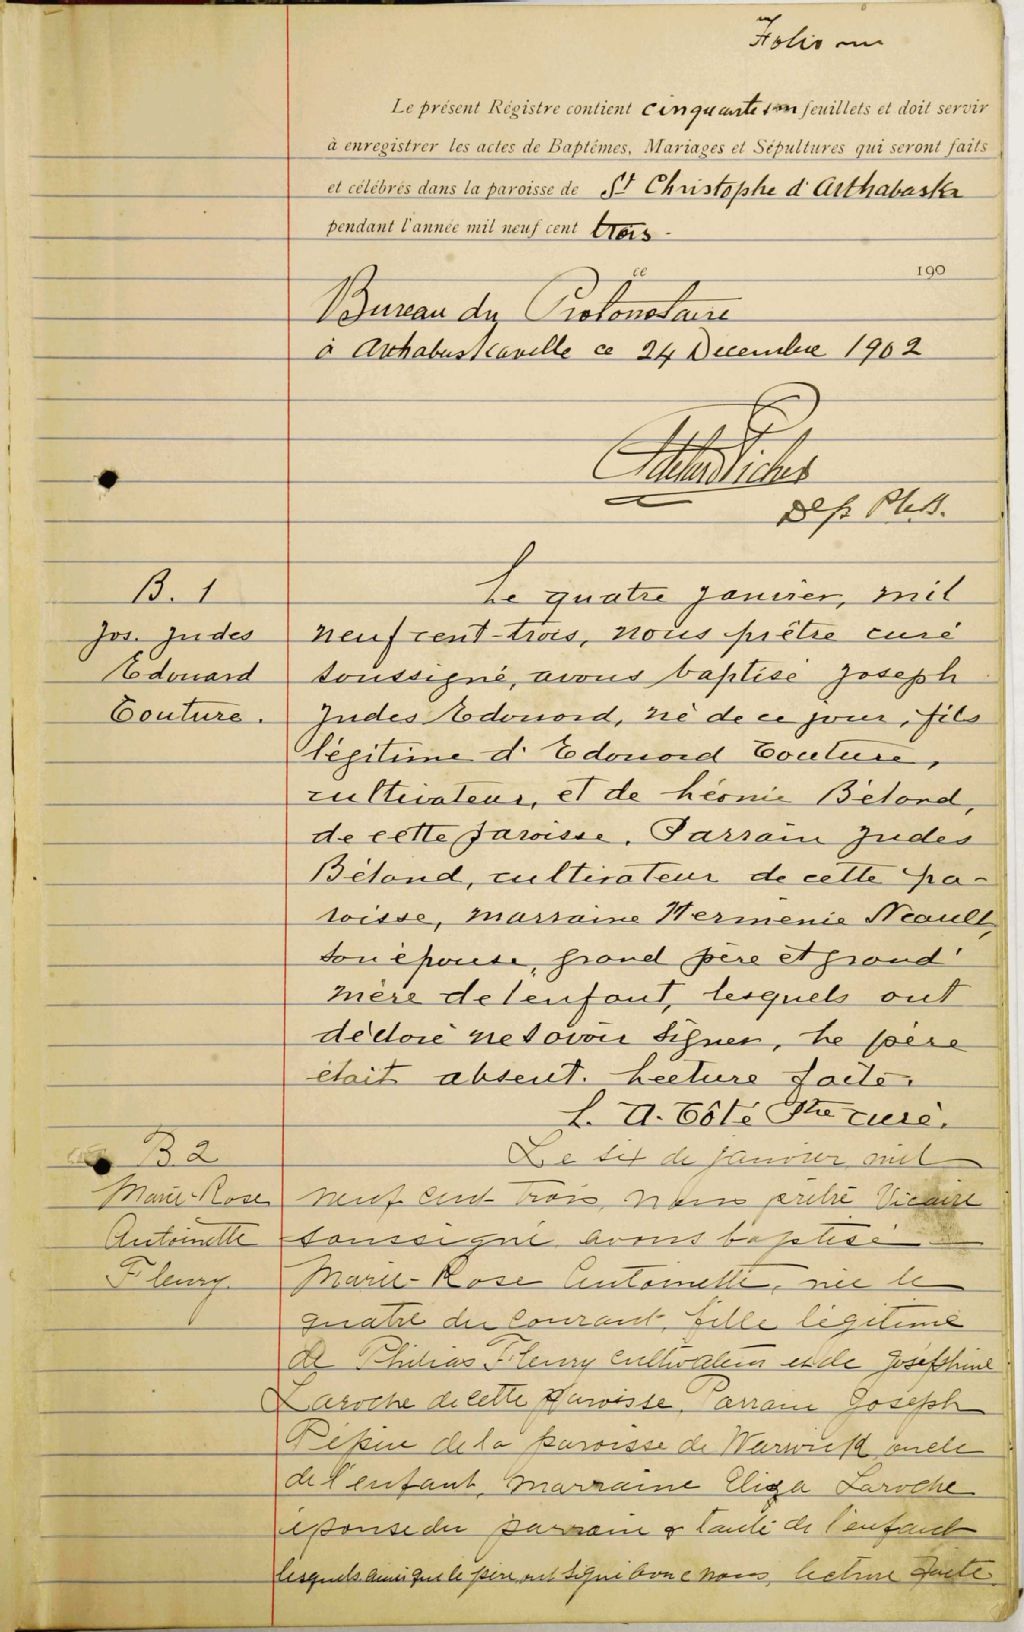 Folio un
Le présent Régistre contient cinquante un feuillets et doit servir
à enregistrer les actes de Baptêmes, Mariages et Sépultures qui seront faits
et célébrés dans la paroisse de St Christophe d'Arthabaska
pendant l'année mil neuf cent trois -
ce 190
Bureau du Protonotaire
à Arthabaskaville ce 24 Decembre 1902
Dep P.C.S.
B. 1
Jos. Judes
Edouard
Couture.
Le quatre janvier, mil
neuf cent-trois, nous prêtre curé
soussigné, avons baptisé Joseph
Judes Edouard, né de ce jour, fils
légitime d'Edouard Couture,
cultivateur, et de Léonie Béland,
de cette paroisse. Parrain Judes
Béland, cultivateur de cette pa-
roisse, marraine Herménie Neault,
son épouse, grand père et grand'
mère de l'enfant, lesquels ont
déclaré ne savoir signer, le père
était absent. Lecture faite.
L. A. Côté Ptre curé.
B. 2
Marie-Rose
Antoinette
Fleury.
Le six de janvier mil
neuf cent trois, nous prêtre Vicaire
soussigné avons baptisé
Marie-Rose Antoinette, née le
quatre du courant, fille légitime
de Philias Fleury cultivateur et de Joséphine
Laroche de cette paroisse. Parrain Joseph
Pépin de la paroisse de Warwick oncle
de l'enfant, marraine Eliza Laroche
épouse du parrain & tante de l'enfant
lesquels ainsi que le père, ont signé avec nous, lecture faite.